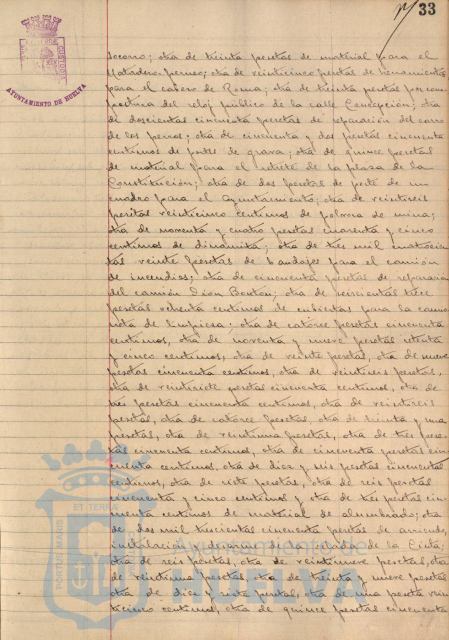 33
AYUNTAMIENTO DE HUELVA
socorro; otra de treinta pesetas de material para el
Matadero; otra de veinticinco pesetas de herramientas
para el cabero de Roma; otra de treinta pesetas por com-
postura del reloj público de la calle Concepción; otra
de doscientas cincuenta pesetas de reparación del carro
de los perros; otra de cincuenta y dos pesetas cincuenta
centimos de portes de grava; otra de quince pesetas
de material para el retrete de la plaza de la
Constitución; otra de dos pesetas de porte de un
cuadro para el Ayuntamiento; otra de veintiseis
pesetas veinticinco centimos de polvora de mina;
otra de noventa y cuatro pesetas cuarenta y cinco
centimos de dinamita; otra de tres mil cuatrocien-
tas veinte pesetas de bandajes para el camión
de incendios; otra de cincuenta pesetas de reparación
del camión Dion Bouton; otra de seiscientas trece
pesetas ochenta centimos de cubiertas para la camio-
neta de limpieza; otra de catorce pesetas cincuenta
centimos, otra de noventa y nueve pesetas setenta
y cinco centimos, otra de veinte pesetas, otra de nueve
pesetas cincuenta centimos, otra de veintiseis pesetas,
otra de veintisiete pesetas cincuenta centimos, otra de
tres pesetas cincuenta centimos, otra de veintiseis
pesetas, otra de catorce pesetas, otra de treinta y una
pesetas, otra de veintiuna pesetas, otra de tres pese-
tas cincuenta centimos, otra de cincuenta pesetas cin-
cuenta centimos, otra de diez y seis pesetas cincuenta
centimos, otra de siete pesetas, otra de seis pesetas
cincuenta y cinco centimos y otra de tres pesetas cin-
cuenta centimos de material de alumbrado; otra
de dos mil trescientas cincuenta pesetas de arriendo,
instalación y de la Cinta;
otra de seis pesetas, otra de veintinueve pesetas, otra
de veintiuna pesetas, otra de treinta y nueve pesetas
otra de diez y siete pesetas, otra de una peseta vein-
ticinco centimos, otra de quince pesetas cincuenta
PORTUS MARIS
ET TERRA
Ayuntamiento de
HUELVA